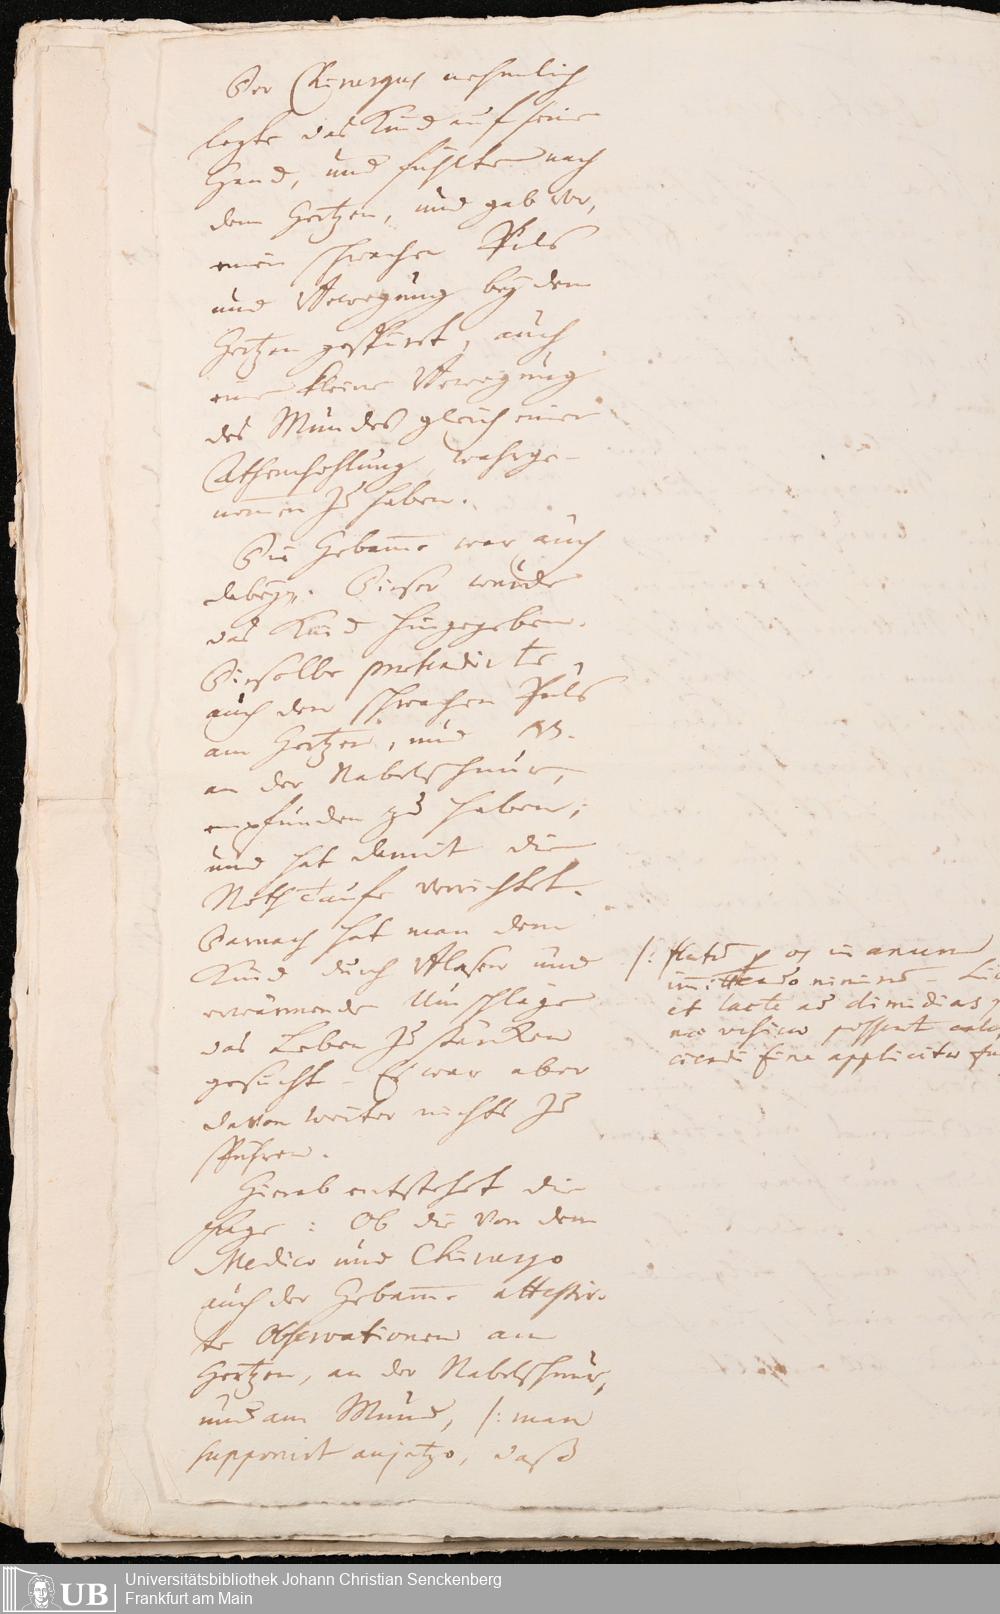 Der Chirurgus nehmlich
legte das Kind auf seine
Hand, und fühlte nach
dem Hertzen, und gab vor,
einen schwachen Puls
und Bewegung bey dem
Hertzen gespürt, auch
eine kleine Bewegung
des Mundes gleich einer
Athemhohlung wahrge-
nommen zu haben.
Die Hebamme war auch
dabey. Dieser wurde
das Kind hingegeben.
Dieselbe praetendirte,
auch den schwachen Puls
am Hertzen, und NB.
an der Nabelschnur,
empfunden zu haben;
und hat damit die
Nothtaufe verrichtet.
Darnach hat man dem
Kind durch Blasen und
erwärmende Umschläge
das Leben zu stärcken
gesucht. Es war aber
davon weiter nichts zu
spühren.
Hierab entstehet die
Frage: Ob die von dem
Medico und Chirurgo
auch der Hebamme attestir-
te Observationen am
Hertzen, an der Nabelschnur,
und am Mund, /: man
supponirt anjetzo, daß
/: flatu p os in anum
immittendo
et lacte ad dimidias
possent
applicita
Universitätsbibliothek Johann Christian Senckenberg
Frankfurt am Main
UB